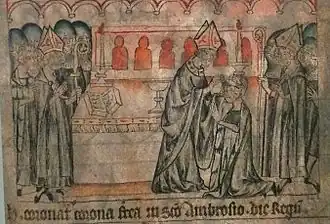 coronat corona frea in sco Ambrosio. die Regu